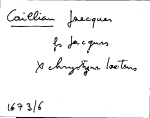 Caillian Jacques
fs Jacques
x chrystyne
1673/6